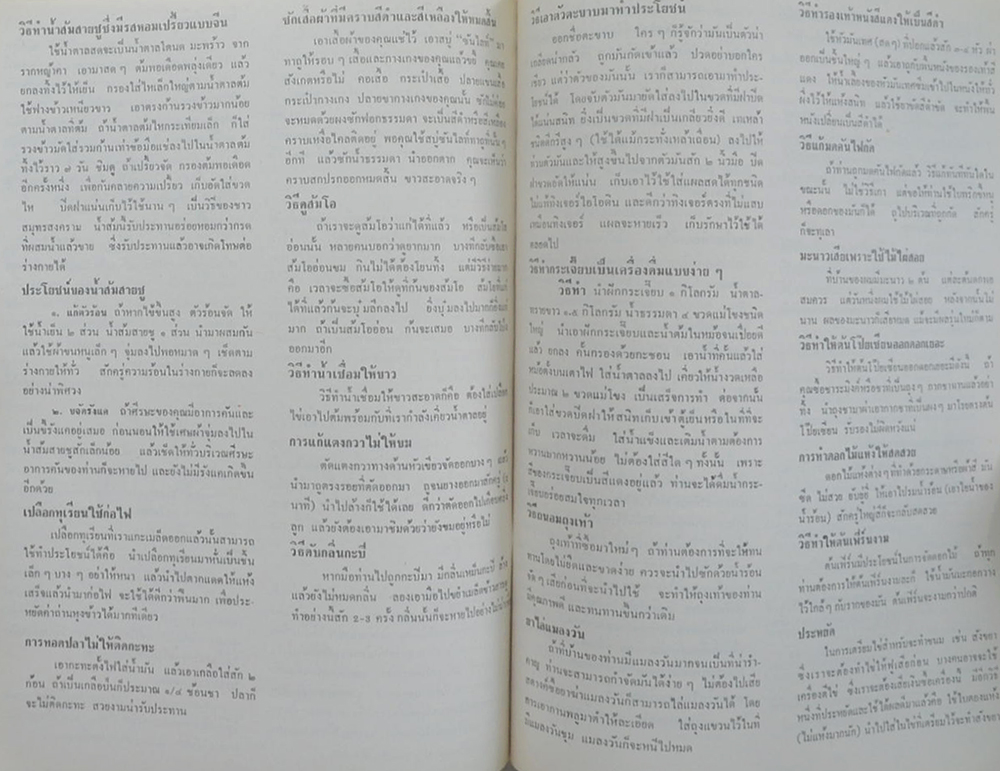 วิธีทำน้ำส้มสายชูซึ่งมีรสหอมเปรี้ยวแบบจีน
ใช้น้ำตาลสดจะเป็นน้ำตาลโตนด มะพร้าว จาก
รากหญ้าคา เอามาสด ๆ ต้มพอเดือดพลุ่งเดียว แล้ว
ยกลงทิ้งไว้ให้เย็น กรองใส่ไหเล็กใหญ่ตามน้ำตาลต้ม
ใช้ฟางข้าวเหนียวขาว เอาตรงก้านรวงข้าวมากน้อย
ตามน้ำตาลที่ต้ม ถ้าน้ำตาลต้มไหกระเทียมเล็ก ก็ใส่
รวงข้าวมัดใส่รวมก้นเท่าข้อมือแช่ลงไปในน้ำตาลต้ม
ทิ้งไว้ราว ๗ วัน ชิมดู ถ้าเปรี้ยวจัด กรองต้มพอเดือด
อีกครั้งหนึ่ง เพื่อกันคลายความเปรี้ยว เก็บอัดใส่ขวด
ไห ปิดฝาแน่นเก็บไว้ใช้นาน ๆ เป็นวิธีของชาว
สมุทรสงคราม น้ำส้มนี้รับประทานอร่อยหอมกว่ากรด
ที่ผสมน้ำแล้วขาย ซึ่งรับประทานแล้วอาจเกิดโทษต่อ
ร่างกายได้
ประโยชน์ของน้ำส้มสายชู
๑. แก้ตัวร้อน ถ้าหากไข้ขึ้นสูง ตัวร้อนจัด ให้
ใช้น้ำเย็น ๒ ส่วน น้ำส้มสายชู ๑ ส่วน นำมาผสมกัน
แล้วใช้ผ้าขนหนูเล็ก ๆ จุ่มลงไปพอหมาด ๆ เช็ดตาม
ร่างกายให้ทั่ว สักครู่ความร้อนในร่างกายก็จะลดลง
อย่างน่าพิศวง
๒. ขจัดรังแค ถ้าศีรษะของคุณมีอาการคันและ
เป็นขี้รังแคอยู่เสมอ ก่อนนอนให้ใช้เศษผ้าจุ่มลงไปใน
น้ำส้มสายชูสักเล็กน้อย แล้วเช็ดให้ทั่วบริเวณศีรษะ
อาการคันของท่านก็จะหายไป และยังไม่มีรังแคเกิดขึ้น
อีกด้วย
เปลือกทุเรียนใช้ก่อไฟ
เปลือกทุเรียนที่เราแกะเมล็ดออกแล้วนั้นสามารถ
ใช้ทำประโยชน์ได้คือ นำเปลือกทุเรียนมาหั่นเป็นชิ้น
เล็ก ๆ บาง ๆ อย่าให้หนา แล้วนำไปตากแดดให้แห้ง
เสร็จแล้วนำมาก่อไฟ จะใช้ได้ดีกว่าฟืนมาก เพื่อประ-
หยัดค่าถ่านหุงข้าวได้มากทีเดียว
การทอดปลาไม่ให้ติดกะทะ
เอากะทะตั้งไฟใส่น้ำมัน แล้วเอาเกลือใส่สัก ๒
ก้อน ถ้าเป็นเกลือป่นก็ประมาณ ๑/๔ ช้อนชา ปลาก็
จะไม่ติดกะทะ สวยงามน่ารับประทาน
ซักเสื้อผ้าที่มีคราบสีดำและสีเหลืองให้หมดสิ้น
เอาเสื้อผ้าของคุณแช่ไว้ เอาสบู่ "ซันไลท์" มา
ทาถูให้รอบ ๆ เสื้อและกางเกงของคุณแล้วขยี้ คุณคง
สังเกตหรือไม่ คอเสื้อ กระเป๋าเสื้อ ปลายแขนเสื้อ
กระเป๋ากางเกง ปลายขากางเกงของคุณนั้น
จะหมดด้วยผงซักฟอกธรรมดา จะเป็นสีดำหรือสีเหลือง
คราบเหงื่อไคลติดอยู่ พอคุณใช้สบู่ซันไลท์ทาถูที่นั้น ๆ
อีกที แล้วซักน้ำธรรมดา นำออกตาก คุณจะเห็นว่า
คราบสกปรกออกหมดสิ้น ขาวสะอาดจริง ๆ
วิธีดูส้มโอ
ถ้าเราจะดูส้มโอว่าแก่ได้ที่แล้ว หรือเป็นส้มโอ
อ่อนนั้น หลายคนบอกว่าดูยากมาก บางทีกลับซื้อเอา
ส้มโออ่อนขม กินไม่ได้ต้องโยนทิ้ง แต่มีวิธีง่ายมาก
คือ เวลาจะซื้อส้มโอให้ดูที่ก้นของส้มโอ
ได้ที่แล้วก้นจะบุ๋มลึกลงไป ยิ่งบุ๋มลงไปมากก็ยิ่งแก่
มาก ถ้าเป็นส้มโออ่อน ก้นจะเสมอ
ออกมาอีก
วิธีทำน้ำเชื่อมให้ขาว
วิธีทำน้ำเชื่อมให้ขาวสะอาดก็คือ ต้องใส่เปลือก
ไข่เอาไปต้มพร้อมกับที่เรากำลังเคี่ยวน้ำตาลอยู่
การแก้แตงกวาไม่ให้ขม
ตัดแตงกวาทางด้านหัวเขียวจัดออกบาง ๆ แล้ว
นำมาถูตรงรอยที่ตัดออกมา ถูจนยางออกมาสักครู่
นาที) นำไปล้างก็ใช้ได้เลย ดีกว่าตัดออกไปเกือบครึ่ง
ลูก แล้วยังต้องเอามาชิมด้วยว่ายังขมอยู่หรือไม่
วิธีดับกลิ่นกะปิ
หากมือท่านไปถูกกะปิมา มีกลิ่นเหม็นกะปิ ล้าง
แล้วยังไม่หมดกลิ่น ลองเอามือไปขยำเมล็ดข้าวสาร
ทำอย่างนี้สัก 2-3 ครั้ง กลิ่นนั้นก็จะหายไปอย่างไม่น่าเชื่อ
วิธีเอาตัวตะขาบมาทำประโยชน์
ออกชื่อตะขาบ ใคร ๆ ก็รู้จักว่ามันเป็นตัวน่า
เกลียดน่ากลัว ถูกมันกัดเข้าแล้ว ปวดอย่าบอกใคร
เชียว แต่ว่าตัวของมันนั้น เราก็สามารถเอามาทำประ-
โยชน์ได้ โดยจับตัวมันมายัดใส่ลงไปในขวดที่มีฝาปิด
ได้แน่นสนิท ยิ่งเป็นขวดที่มีฝาเป็นเกลียวยิ่งดี เทเหล้า
ชนิดดีกรีสูง ๆ (ใช้ได้แม้กระทั่งเหล้าเถื่อน) ลงไปให้
ท่วมตัวมันและให้สูงขึ้นไปจากตัวมันสัก ๒ นิ้วมือ ปิด
ฝาขวดอัดให้แน่น เก็บเอาไว้ใช้ใส่แผลสดได้ทุกชนิด
ไม่แพ้ทิงเจอร์ไอโอดิน และดีกว่าทิงเจอร์ตรงที่ไม่แสบ
เหมือนทิงเจอร์ แผลจะหายเร็ว เก็บรักษาไว้ใช้ได้
ตลอดไป
วิธีทำกระเจี๊ยบเป็นเครื่องดื่มแบบง่าย ๆ
วิธีทำ นำฝักกระเจี๊ยบ ๑ กิโลกรัม น้ำตาล-
ทรายขาว ๑.๕ กิโลกรัม น้ำธรรมดา ๔ ขวดแม่โขงชนิด
ใหญ่ นำเอาฝักกระเจี๊ยบและน้ำต้มในหม้อจนเปื่อยดี
แล้ว ยกลง คั้นกรองด้วยกะชอน เอาน้ำที่คั้นแล้วใส่
หม้อตั้งบนเตาไฟ ใส่น้ำตาลลงไป เคี่ยวให้น้ำงวดเหลือ
ประมาณ ๒ ขวดแม่โขง เป็นเสร็จการทำ ต่อจากนั้น
ก็เอาใส่ขวดปิดฝาให้สนิทเก็บเข้าตู้เย็นหรือในที่ที่จะ
เก็บ เวลาจะดื่ม ใส่น้ำแข็งและเติมน้ำตามต้องการ
หวานมากหวานน้อย ไม่ต้องใส่สีใด ๆ ทั้งนั้น เพราะ
สีของกระเจี๊ยบเป็นสีแดงอยู่แล้ว ท่านจะได้ดื่มน้ำกระ-
เจี๊ยบอร่อยสมใจทุกเวลา
วิธีถนอมถุงเท้า
ถุงเท้าที่ซื้อมาใหม่ๆ ถ้าท่านต้องการที่จะให้ทน
ทานโดยไม่ยืดและขาดง่าย ควรจะนำไปซักด้วยน้ำร้อน
จัด ๆ เสียก่อนที่จะนำไปใช้ จะทำให้ถุงเท้าของท่าน
มีคุณภาพดี และทนทานขึ้นกว่าเดิม
ยาไล่แมลงวัน
ถ้าที่บ้านของท่านมีแมลงวันมากจนเป็นที่น่ารำ-
คาญ ท่านจะสามารถกำจัดมันได้ง่าย ๆ ไม่ต้องไปเสีย
สตางค์ซื้อยาฆ่าแมลงวันก็สามารถไล่แมลงวันได้ โดย
การเอากานพลูมาตำให้ละเอียด ใส่ถุงแขวนไว้ในที่
มีแมลงวันชุม แมลงวันก็จะหนีไปหมด
วิธีทำรองเท้าหนังสีแดงให้เป็นสีดำ
ใช้หัวมันเทศ (สด ๆ) ที่ปอกแล้วสัก ๓-๔ หัว ผ่า
ออกเป็นชิ้นใหญ่ ๆ แล้วเอาถูกับพื้นหนังของรองเท้าสี
แดง ให้น้ำเสี้ยงของหัวมันเทศซึมเข้าไปในหนังให้ทั่ว
ผึ่งไว้ให้แห้งสนิท แล้วใช้ยาขัดสีดำขัด จะทำให้พื้น
หนังเปลี่ยนเป็นสีดำได้
วิธีแก้มดคันไฟกัด
ถ้าท่านถูกมดคันไฟกัดแล้ว วิธีแก้คันที่ทันใดใน
ขณะนั้น ไม่ใช่วิธีเกา แต่ขอให้ท่านใช้ใบพริกขี้หนู
หรือดอกของมันก็ได้ ถูไปบริเวณที่ถูกกัด สักครู่
ก็จะทุเลา
มะนาวเสียเพราะใช้ไม้ไผ่สอย
ที่บ้านของผมมีมะนาว ๒ ต้น
สมควร แต่วันหนึ่งผมใช้ไม้ไผ่สอย หลังจากนั้นไม่
นาน ผลของมะนาวก็เสียหมด
วิธีทำให้ต้นโป๊ยเซียนออกดอกเยอะ
วิธีทำให้ต้นโป๊ยเซียนออกดอกเยอะมีดังนี้ ถ้า
ทิ้ง นำถุงชามาผ่าเอากากชาที่เป็นผงๆ มาโรยตรงต้น
โป๊ยเซียน รับรองไม่ผิดหวังแน่
การทำดอกไม้แห้งให้สดสวย
ดอกไม้แห้งต่างๆ ที่ทำด้วยกระดาษหรือผ้าสี มัน
ซีด ไม่สวย อับเฉา ให้เอาไปรมน้ำร้อน (เอาไอน้ำของ
น้ำร้อน) สักครู่ใหญ่สีก็จะกลับสดสวย
วิธีทำให้ต้นเฟิร์นงาม
ต้นเฟิร์นมีประโยชน์ในการจัดดอกไม้ ถ้าทุก
ท่านต้องการให้ต้นเฟิร์นงามละก็ ใช้น้ำมันมะกอกวาง
ไว้ใกล้ๆ กับรากของมัน ต้นเฟิร์นจะงามกว่าปกติ
ประหยัด
ในการเตรียมไข่สำหรับจะทำขนม เช่น สังขยา
ซึ่งเราจะต้องทำไข่ให้ฟูเสียก่อน บางคนอาจจะใช้
เครื่องตีไข่ ซึ่งเราจะต้องเสียเงินซื้อเครื่องนี้ มีอีกวิธี
หนึ่งที่ประหยัดและใช้ได้ผลดีมาแล้วคือ ใช้ใบตองแห้ง
(ไม่แห้งมากนัก) นำไปใส่ในไข่ที่เตรียมไว้จะทำสังขยา